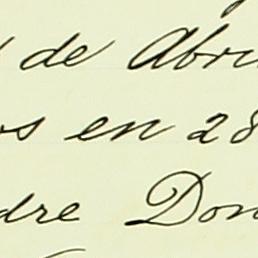 de Abri
os en 28
dre Don